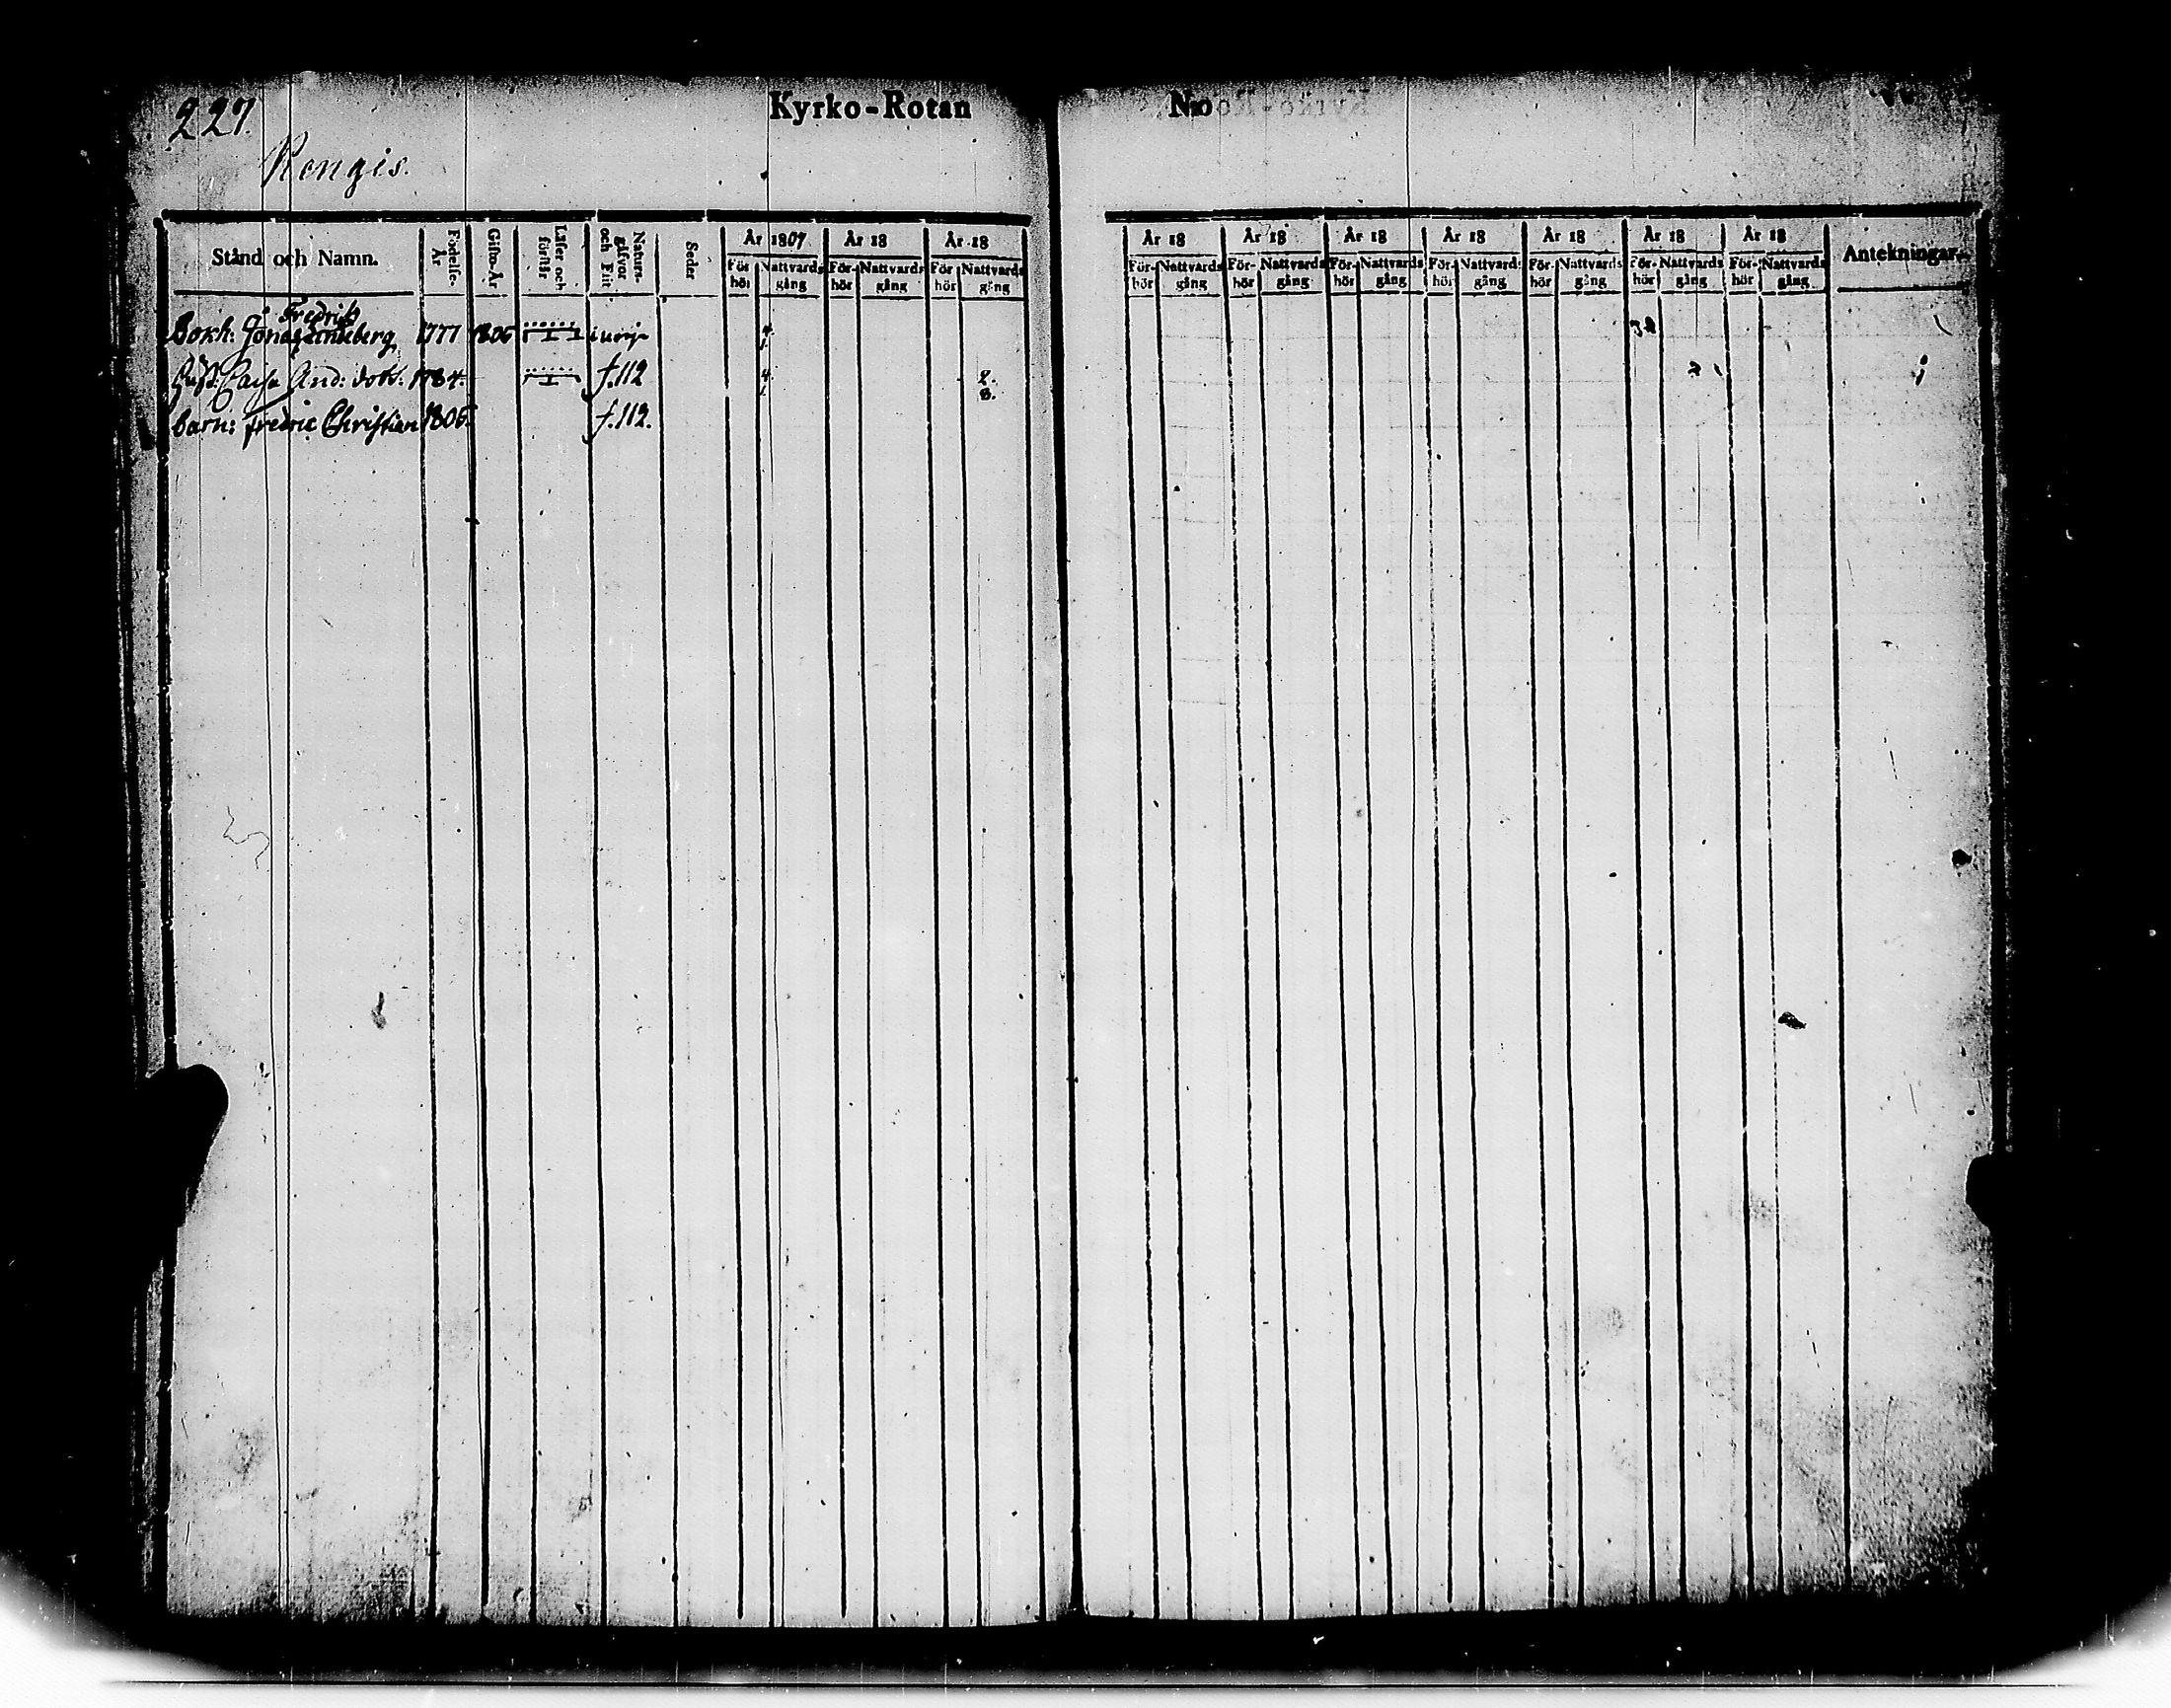 227.
Kyrko-Rotan
N:o
Rengis.
Stånd och Namn.
Födelse-År
Gifto-År
Läser och förstår
Naturs-gåfvor och Flit
Seder
År 1807
År 18
År 18
År 18
År 18
År 18
År 18
År 18
År 18
År 18
Antekningar.
För-hör Nattvards gång
För-hör Nattvards gång
För-hör Nattvards gång
För-hör Nattvards gång
För-hör Nattvards gång
För-hör Nattvards gång
För-hör Nattvards gång
För-hör Nattvards gång
För-hör Nattvards gång
För-hör Nattvards gång
Fredrik
Bokh: Jonas 1777 1805
Hust: Cajsa And: dott: 1784. f.112 4. 1. 2. 8.
barn: fredric Christian 1806. f.112.